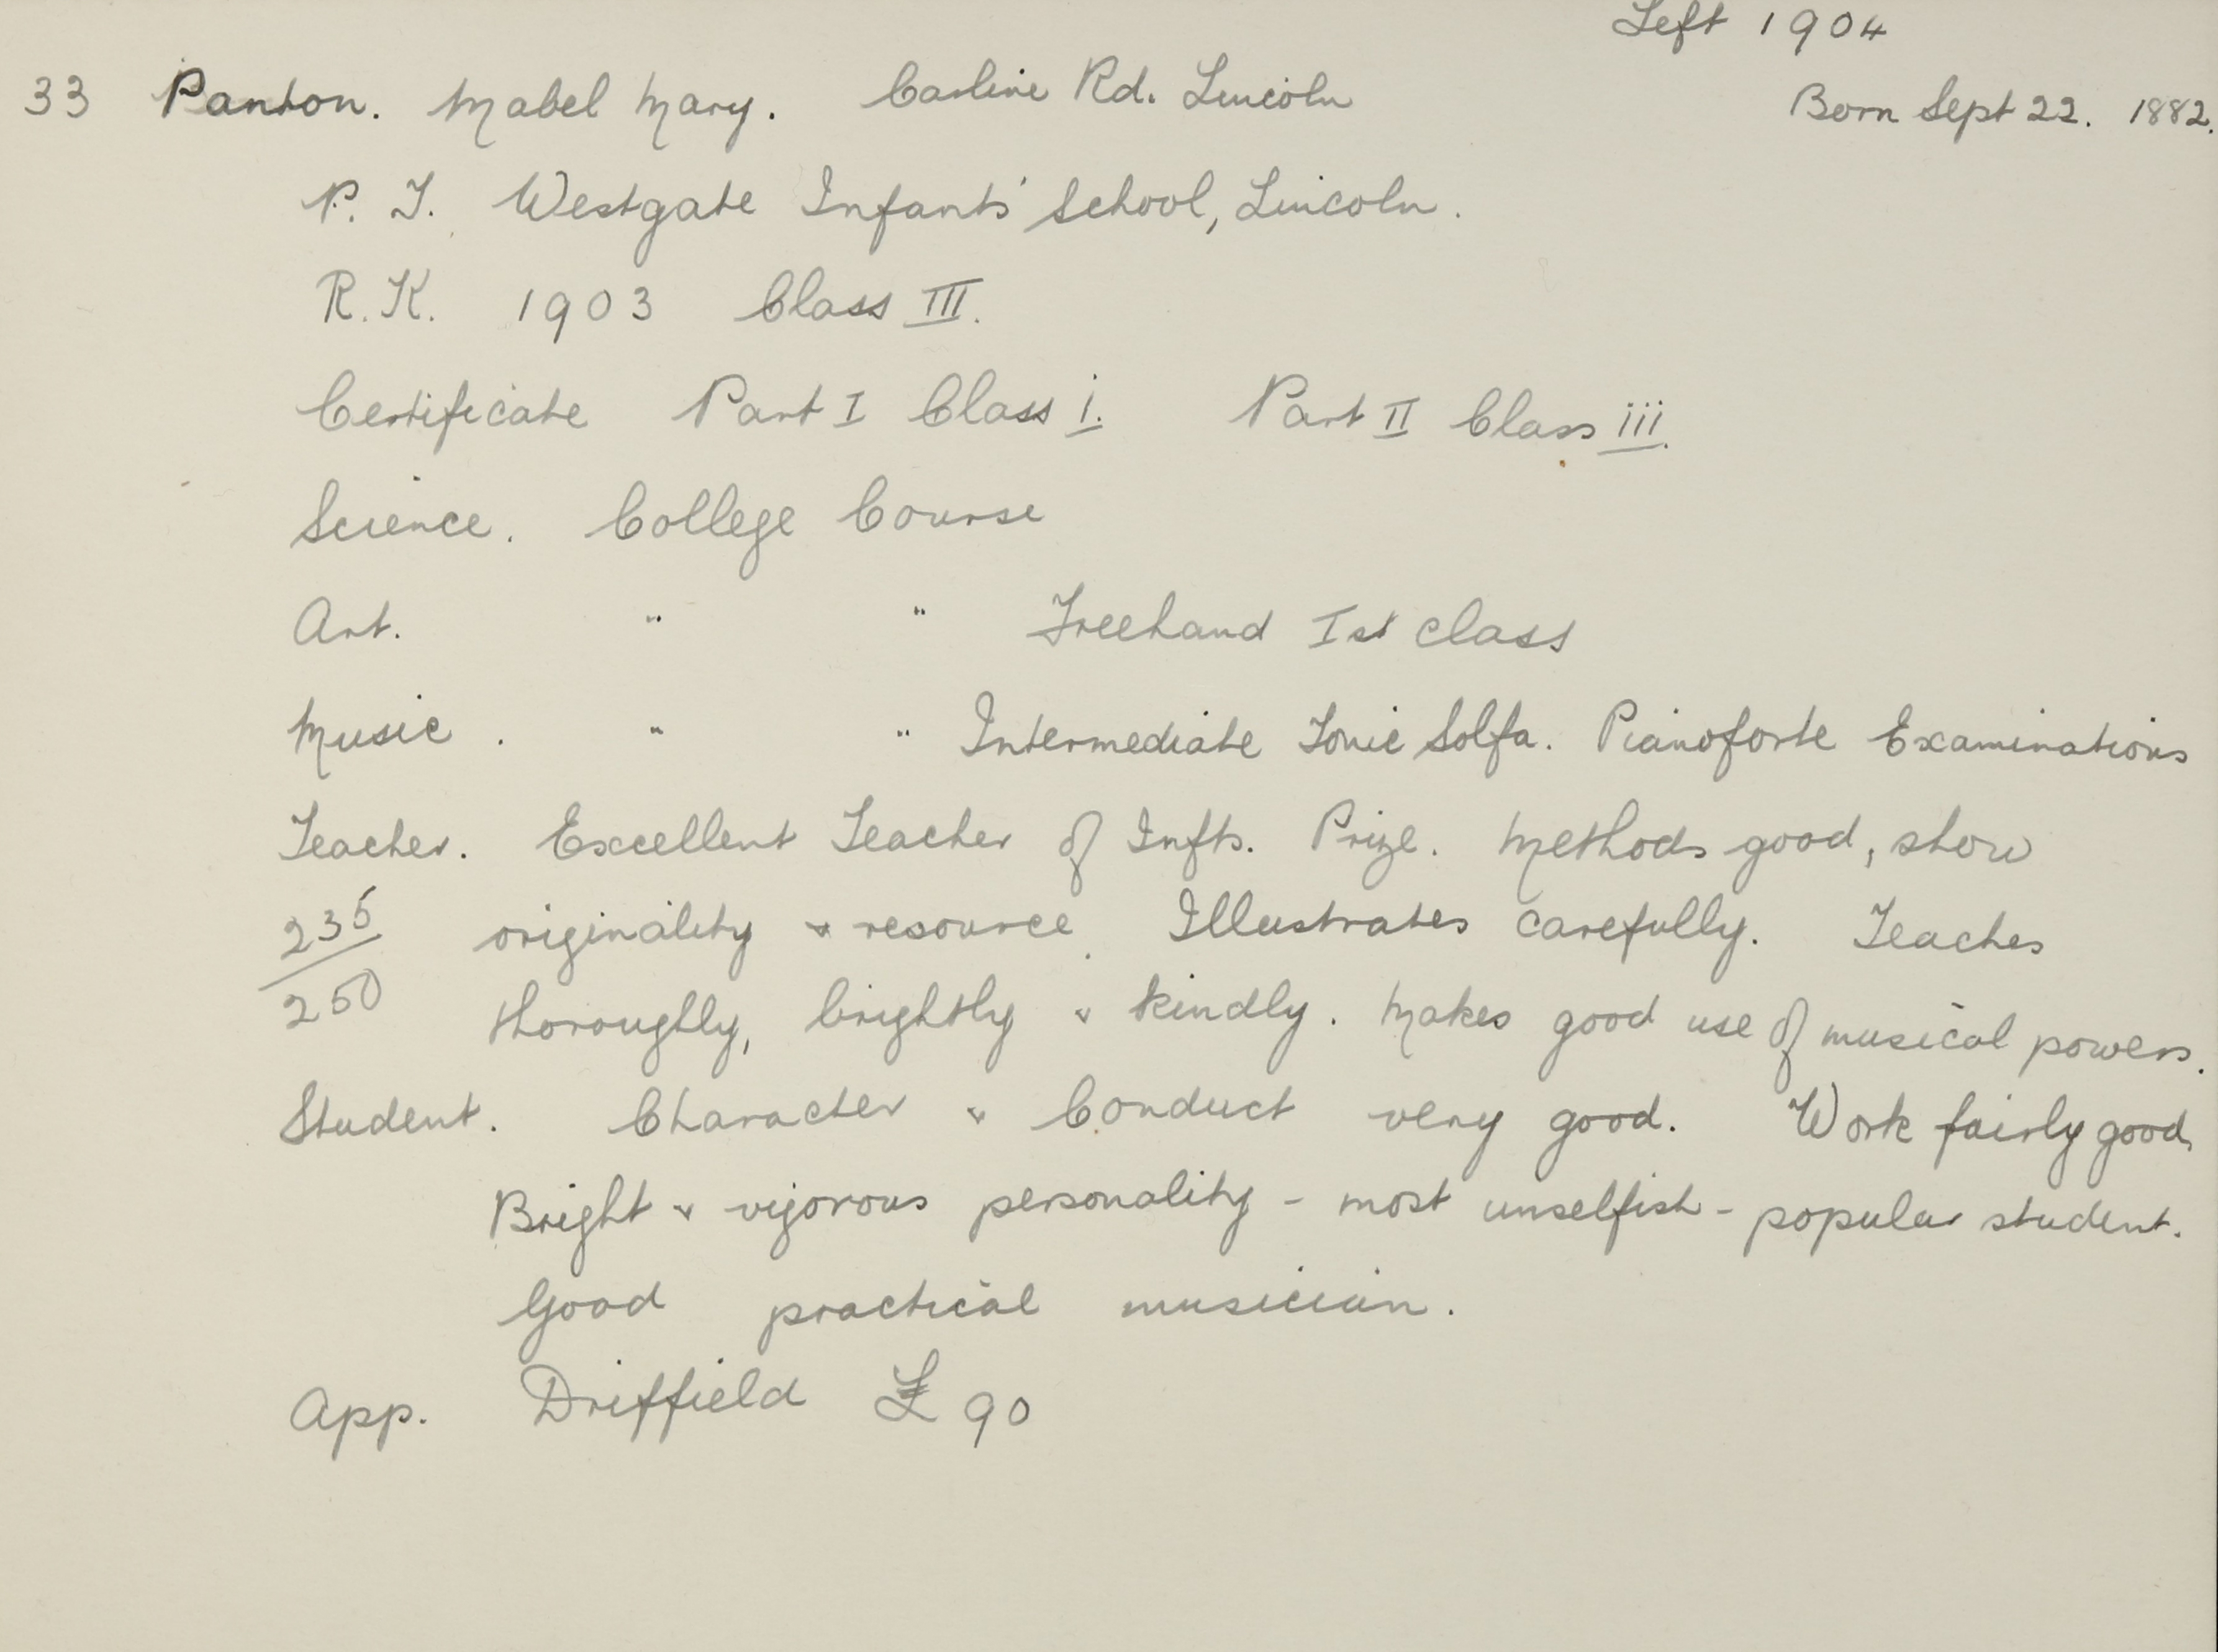 Left 1904
33 Panton. Mabel Mary. Carline Rd. Lincoln Born Sept 22. 1882.
P. T. Westgate Infants' School, Lincoln.
R.K. 1903 Class III.
Certificate Part I Class i. Part II Class iii.
Science. College Course
Art. " " Freehand Ist class
Music. " " Intermediate Tonic Solfa. Pianoforte Examinations
Teacher. Excellent Teacher of Infts. Prize. Methods good, show
235/250 originality & resource. Illustrates carefully. Teaches
thoroughly, brightly & kindly. Makes good use of musical powers.
Student. Character & Conduct very good. Work fairly good.
Bright & vigorous personality - most unselfish - popular student.
Good practical musician.
App. Driffield £90